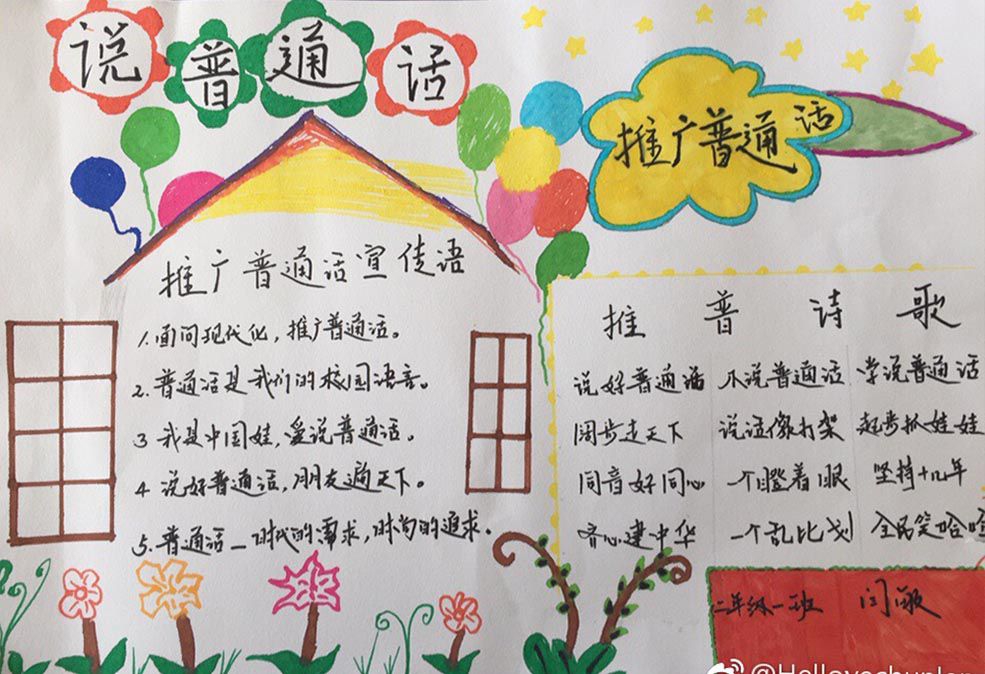 说普通话
推广普通话
推广普通话宣传语
1.面向现代化，推广普通话。
2.普通话是我们的校园语言。
3 我是中国娃，爱说普通话。
4 说好普通话，朋友遍天下。
5.普通话一时代的需求，时尚的追求。
推普诗歌
说好普通话 不说普通话 学说普通话
阔步走天下 说话像打架 起步抓娃娃
同音好同心 一个瞪着眼 坚持十几年
齐心建中华 一个乱比划 全民笑哈哈
二年级一班